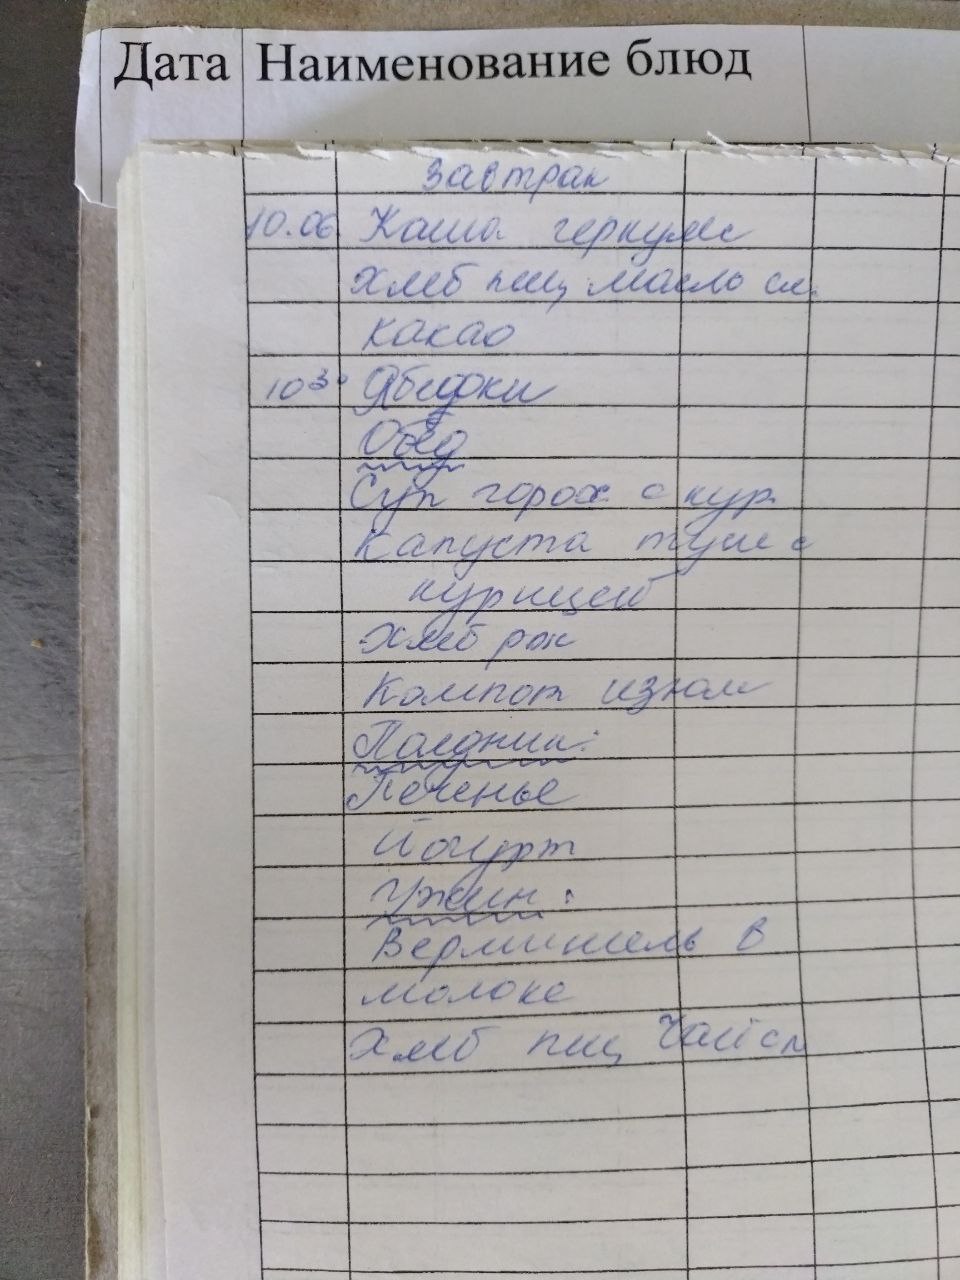 Дата Наименование блюд
Завтрак
10.06 Каша геркулес
Хлеб пш, масло сл.
Какао
10³⁰ Яблоки
Обед
Суп горох с кур
Капуста туш с
курицей
Хлеб рж
Компот изюм
Полдник:
Печенье
Йогурт
Ужин:
Вермишель в
молоке
Хлеб пш, Чай сл